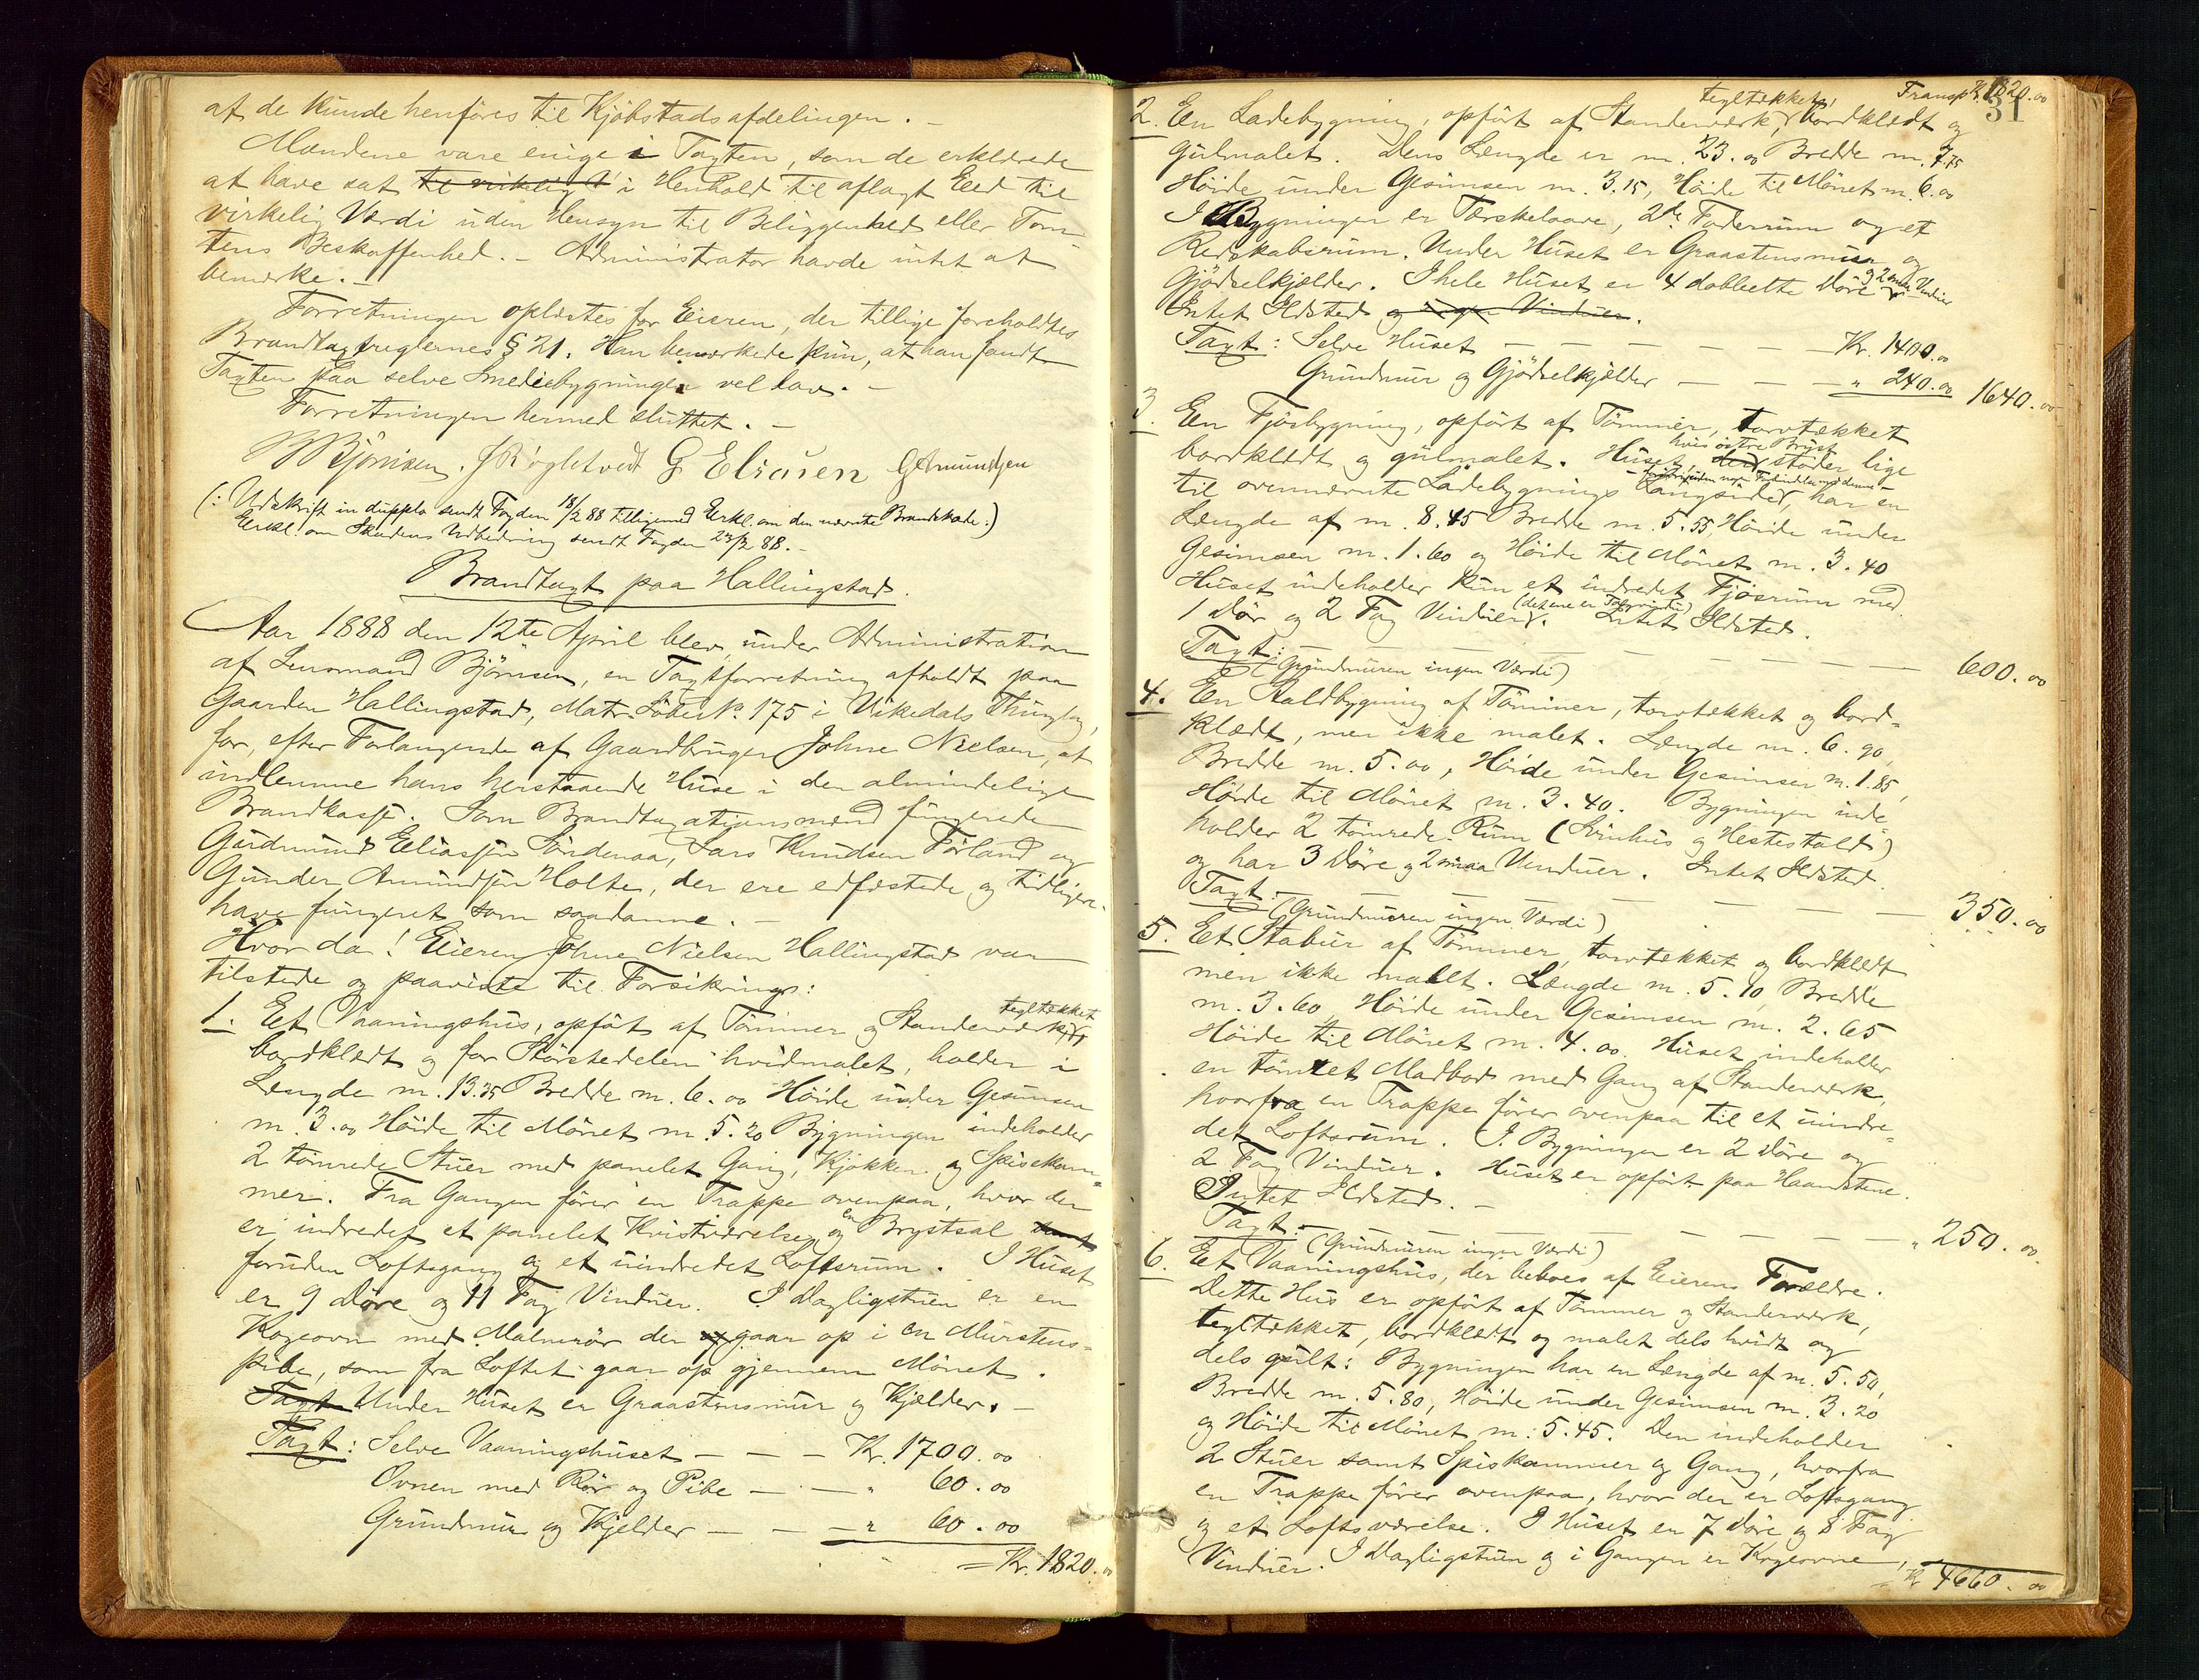 af de kunde henføres til Kjøbstadsafdelingen. –
Mændene vare enige i Taxten, som de erklærede
at have sat til virkelig V i Henhold til aflagt Eed til
virkelig Værdi uden Hensyn til Beliggenhed eller Tom-
tens Beskaffenhed. – Administrator havde intet at
bemærke. –
Forretningen oplæstes for Eieren, der tillige foreholdtes
Brandtaxtreglernes § 21. Han bemærkede kun, at han fandt
Taxten paa selve Smediebygningen vel lav. –
Forretningen hermed sluttet. –
Bjørnsen. G Eliasen G Amundsen
(: Udskrift in duplo sendt Fogden 18/2 88 tilligemed Erkl. om den nævnte Brandskade :)
Erkl. om Skadens Udbedring sendt Fogden 23/2 88. –
Brandtaxt paa Hallingstad.
Aar 1888 den 12te April blev, under Administration
af Lensmand Bjørnsen, en Taxtforretning afholdt paa
Gaarden Hallingstad, Matr. Løbe No. 175 i Vikedals Thinglag,
for, efter Forlangende af Gaardbruger Johne Nielsen, at
indlemme hans herstaaende Huse i den almindelige
Brandkasse. Som Brandtaxationsmænd fungerede
Gudmund Eliassen Søndenaa, Lars Knudsen Førland og
Gunder Amundsen Holte, der ere edfæstede og tidligere
have fungeret som saadanne. –
Hvor da! Eieren Johne Nielsen Hallingstad var
tilstede og paaviste til Forsikring:
1. Et Vaaningshus, opført af Tømmer og Standerværk, tegltækket
bordklædt og for Størstedelen hvidmalet, holder i
Længde m. 13.35 Bredde m. 6.00 Høide under Gesimsen
m. 3.00 Høide til Mønet m. 5.20 Bygningen indeholder
2 tømrede Stuer med panelet Gang, Kjøkken og Spisekam-
mer. Fra Gangen fører en Trappe ovenpaa, hvor der
er indredet et panelet Kvistværelse og en Brystsal samt
foruden Loftsgang og et uindredet Loftsrum. I Huset
er 9 Døre og 11 Fag Vinduer. I Dagligstuen er en
Kogeovn med Malmrør der op gaar op i en Murstens-
pibe, som fra Loftet gaar op gjennem Mønet.
Taxt Under Huset er Graastensmur og Kjælder. –
Taxt: Selve Vaaningshuset – – – Kr. 1700.00
Ovnen med Rør og Pibe – – " 60.00
Grundmur og Kjelder – – – " 60.00
= Kr. 1820.00
31
Transp. Kr. 1820.00
2. Een Ladebygning, opført af Standerværk, tegltækket, bordklædt og
gulmalet. Dens Længde er m. 23.00 Bredde m. 7.75
Høide under Gesimsen m. 3.15, Høide til Mønet m. 6.00
I Bygningen er Tærskelaave, 2de Foderrum og et
Redskabsrum. Under Huset er Graastensmur og
Gjødselkjælder. I hele Huset er 4 dobbelte Døre og 2 smaa Vinduer
Intet Ildsted og ingen Vinduer.
Taxt: Selve Huset – – – – – – Kr. 1400.00
Grundmur og Gjødselkjælder – – – " 240.00 1640.00
3. Een Fjøsbygning, opført af Tømmer, torvtækket
bordklædt og gulmalet. Huset, hvis østre Bryst støder lige
til ovennævnte Ladebygnings Langside, har en
Længde af m. 8.45 Bredde m. 5.55, Høide under
Gesimsen m. 1.60 og Høide til Mønet m. 3.40
Huset indeholder kun et indredet Fjøsrum med
1 Dør og 2 Fag Vinduer (det ene er Tagvindu). Intet Ildsted.
Taxt: – – – – – – – – 600.00
(Grundmuren ingen Værdi)
4. Een Staldbygning af Tømmer, torvtækket og bord-
klædt, men ikke malet. Længde m. 6.90,
Bredde m. 5.00, Høide under Gesimsen m. 1.85,
Høide til Mønet m. 3.40. Bygningen inde-
holder 2 tømrede Rum (Svinhus og Hestestald)
og har 3 Døre og 2 smaa Vinduer. Intet Ildsted.
Taxt – – – – – – – – 350.00
(Grundmuren ingen Værdi)
5. Et Stabur af Tømmer, torvtækket og bordklædt
men ikke malet. Længde m. 5.10, Bredde
m. 3.60, Høide under Gesimsen m. 2.65
Høide til Mønet m. 4.00. Huset indeholder
en tømret Madbod med Gang af Standerværk,
hvorfra en Trappe fører ovenpaa til et uindre-
det Loftsrum. I Bygningen er 2 Døre og
2 Fag Vinduer. Huset er opført paa Haandstene.
Intet Ildsted. –
Taxt – – – – – – – – " 250.00
(Grundmuren ingen Værdi)
6. Et Vaaningshus, der beboes af Eierens Forældre.
Dette Hus er opført af Tømmer og Standerværk,
tegltækket, bordklædt og malet dels hvidt og
dels gult: Bygningen har en Længde af m. 5.50,
Bredde m. 5.80, Høide under Gesimsen m. 3.20
og Høide til Mønet m: 5.45. Den indeholder
2 Stuer samt Spiskammer og Gang, hvorfra
en Trappe fører ovenpaa, hvor der er Loftsgang
og et Loftsværelse. I Huset er 7 Døre og 8 Fag
Vinduer. I Dagligstuen og i Gangen er Kogeovne,
= Kr 4660.00